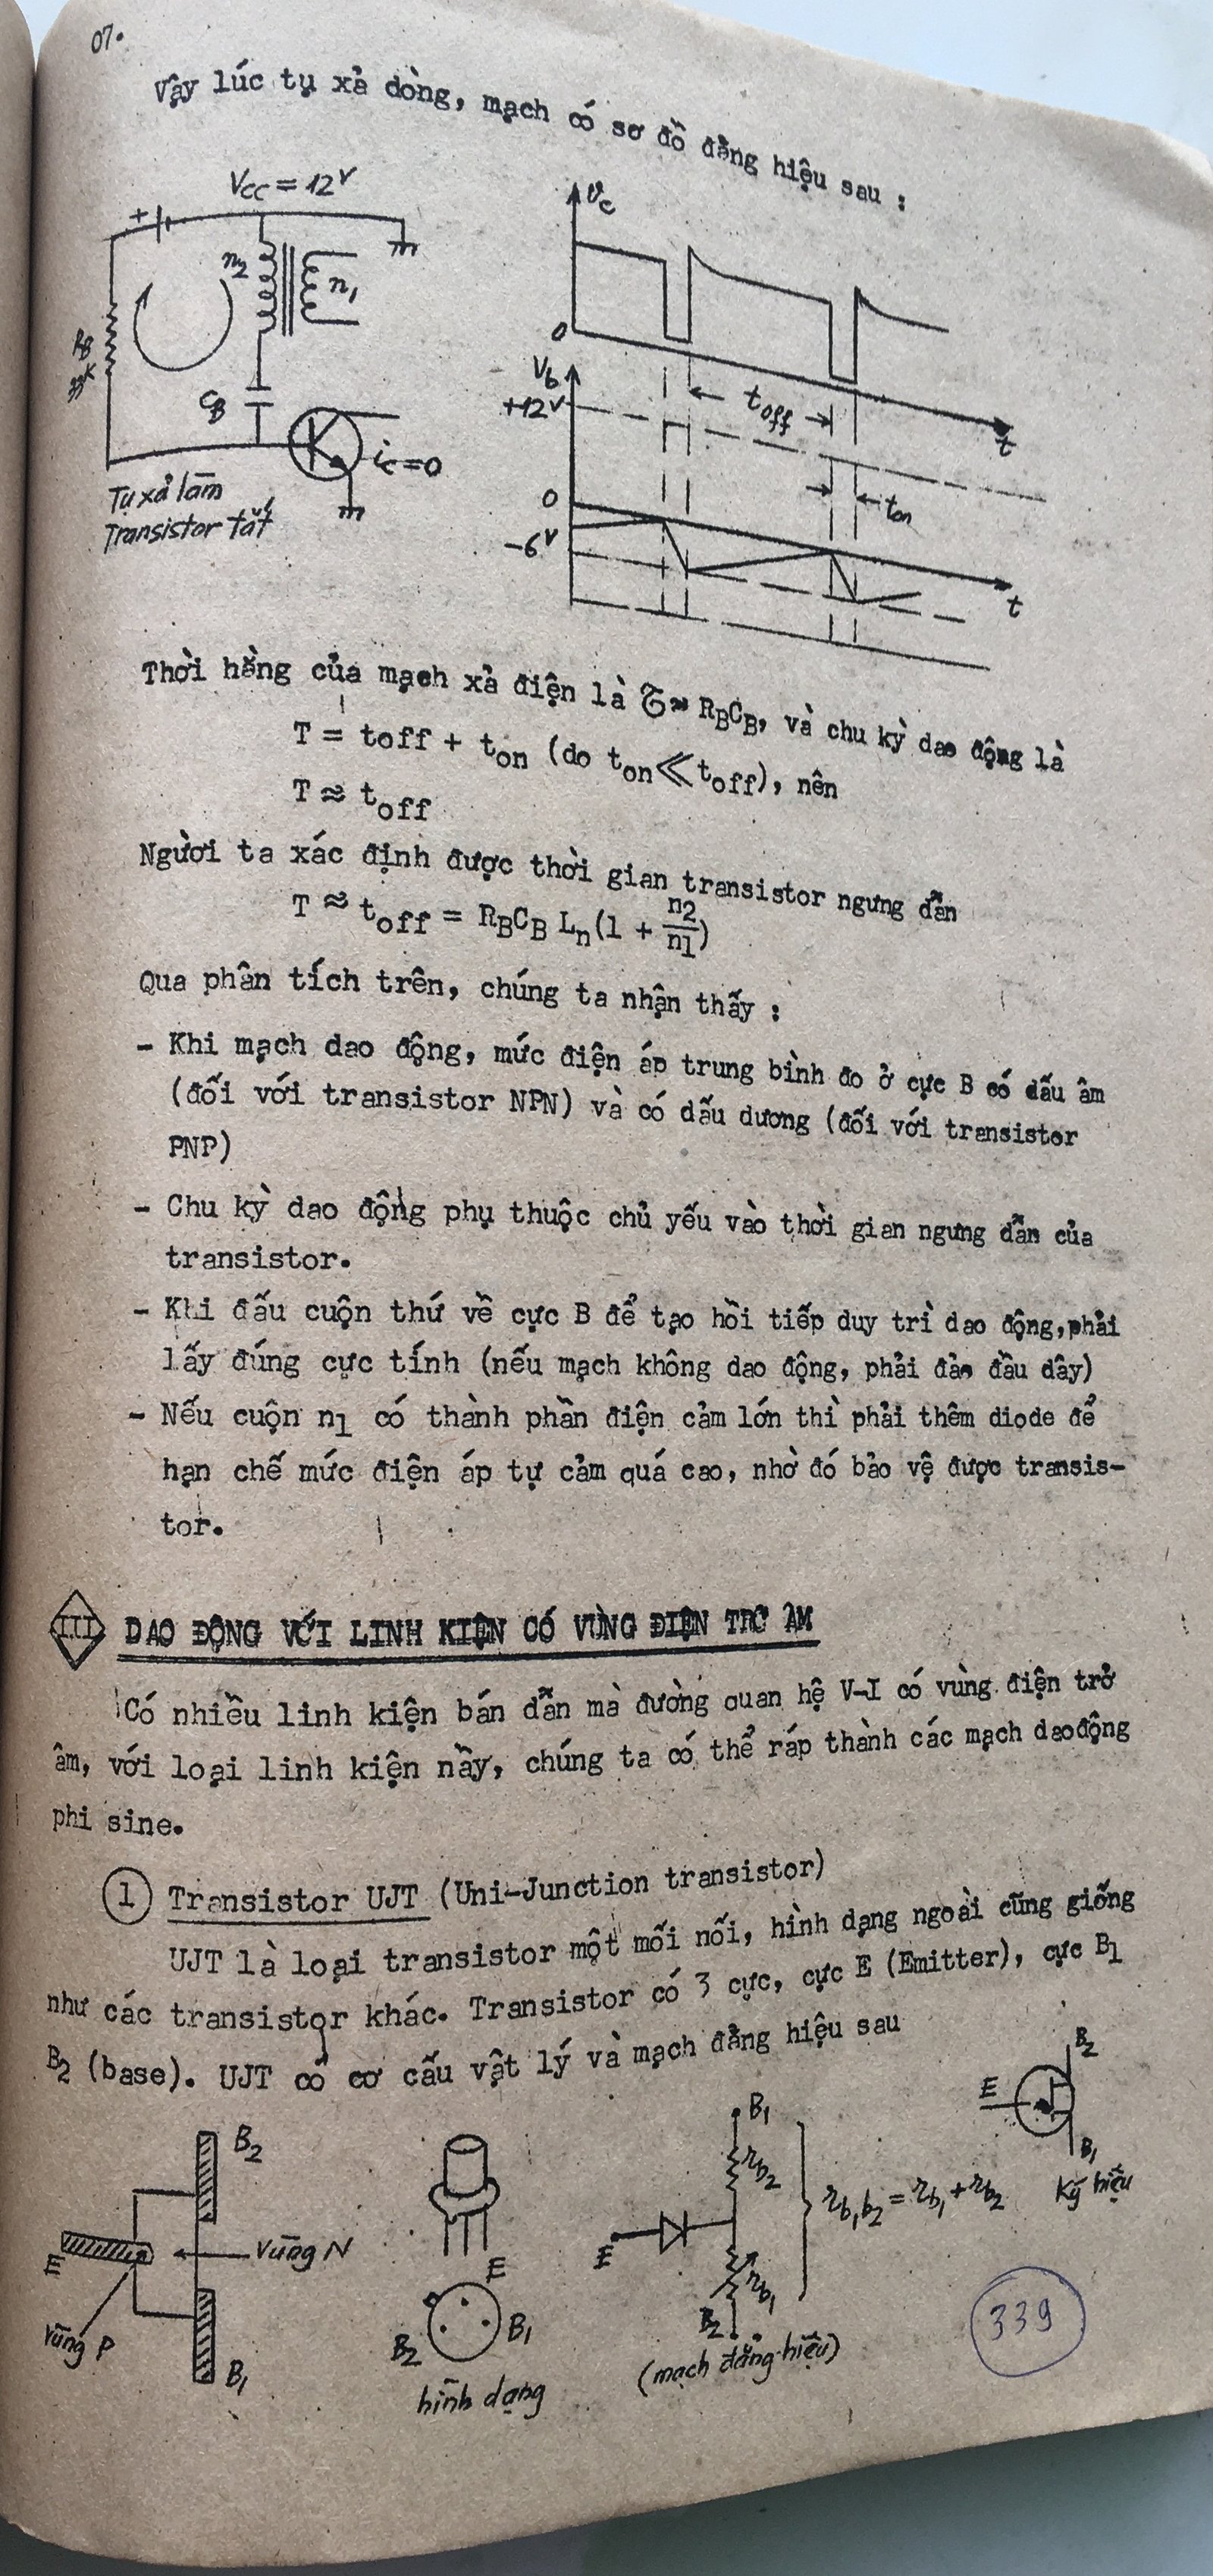 07.
Vậy lúc tụ xả dòng, mạch có sơ đồ đẳng hiệu sau :
VCC = 12V
+
n2
n1
RB
33K
CB
ic=0
Tụ xả làm
Transistor tắt
vc
0
t
Vb
+12V
toff
0
ton
-6V
t
Thời hằng của mạch xả điện là 𝒯 ≈ RBCB, và chu kỳ dao động là
T = toff + ton (do ton ≪ toff), nên
T ≈ toff
Người ta xác định được thời gian transistor ngưng dẫn
T ≈ toff = RBCB Ln(1 + n2/n1)
Qua phân tích trên, chúng ta nhận thấy :
- Khi mạch dao động, mức điện áp trung bình đo ở cực B có dấu âm
(đối với transistor NPN) và có dấu dương (đối với transistor
PNP)
- Chu kỳ dao động phụ thuộc chủ yếu vào thời gian ngưng dẫn của
transistor.
- Khi đấu cuộn thứ về cực B để tạo hồi tiếp duy trì dao động,phải
lấy đúng cực tính (nếu mạch không dao động, phải đảo đầu dây)
- Nếu cuộn n1 có thành phần điện cảm lớn thì phải thêm diode để
hạn chế mức điện áp tự cảm quá cao, nhờ đó bảo vệ được transis-
tor.
III DAO ĐỘNG VỚI LINH KIỆN CÓ VÙNG ĐIỆN TRỞ ÂM
Có nhiều linh kiện bán dẫn mà đường quan hệ V-I có vùng điện trở
âm, với loại linh kiện nầy, chúng ta có thể ráp thành các mạch daođộng
phi sine.
1 Transistor UJT (Uni-Junction transistor)
UJT là loại transistor một mối nối, hình dạng ngoài cũng giống
như các transistor khác. Transistor có 3 cực, cực E (Emitter), cực B1
B2 (base). UJT có cơ cấu vật lý và mạch đẳng hiệu sau
B2
E
Vùng N
Vùng P
B1
E
B1
B2
hình dạng
B1
rb2
E
rb1
B2
rb1b2 = rb1 + rb2
(mạch đẳng hiệu)
E
B2
B1
Ký hiệu
339